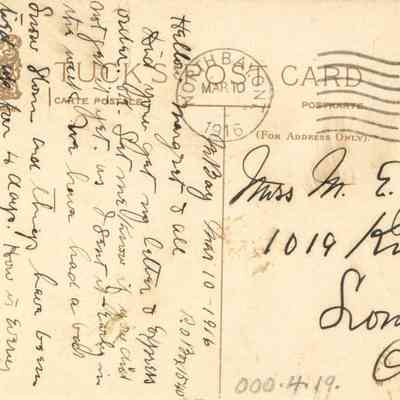 TUCK'S POST CARD
CARTE POSTALE
POSTKARTE
(FOR ADDRESS ONLY).
NORTH BAY ONT
MAR 10
1916
N Bay Mar 10 - 1916
Hellow Margret & all
Have you got my letter & express
order yet. Let me know if you did
not get it yet. as I sent it early in
the week. We have had a bad
Snow Storm and things have been
tied up for 4 days. How is Every
Miss M. E.
1019
000.4.19.